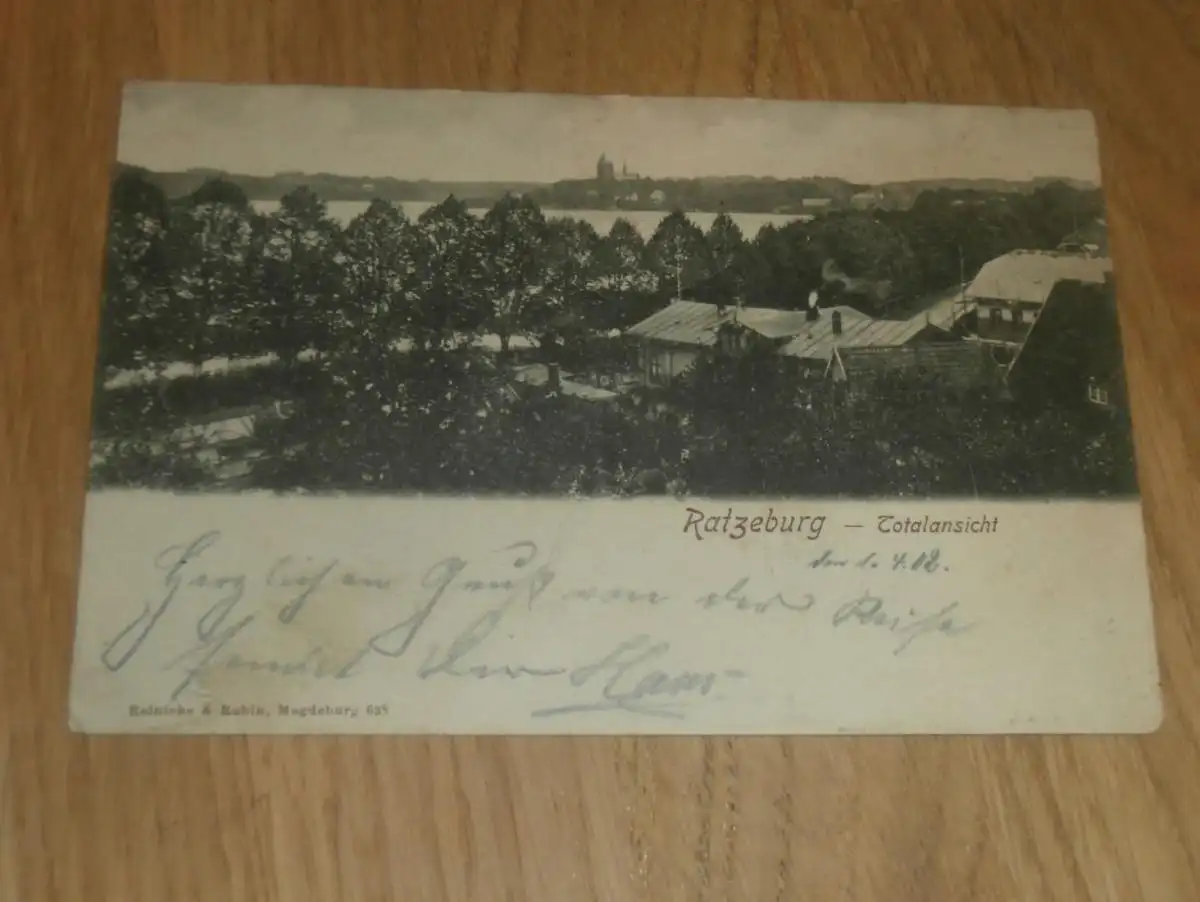 Ratzeburg — Totalansicht
den 1. 4. 02.
Herzlichen Gruß von der Reise
sendet Dir Hans
Reinicke & Rubin, Magdeburg